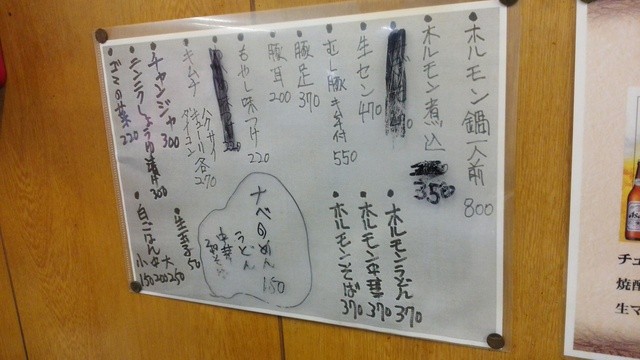 ホルモン鍋一人前 800
ホルモン煮込 350
生セン 470
むし豚 キム付 550
豚足 370
豚耳 200
もやし味つけ 220
キムチ
ハクサイ
キューリ 各270
ダイコン
チャンジャ 300
ニンニクしょうゆ漬け 300
ごまの葉 220
ホルモンうどん 370
ホルモン中華 370
ホルモンそば 370
ナベのめん 150
うどん
中華
生玉子 50
白ごはん 大 250
中 200
小 150
チュ
焼酎
生マ